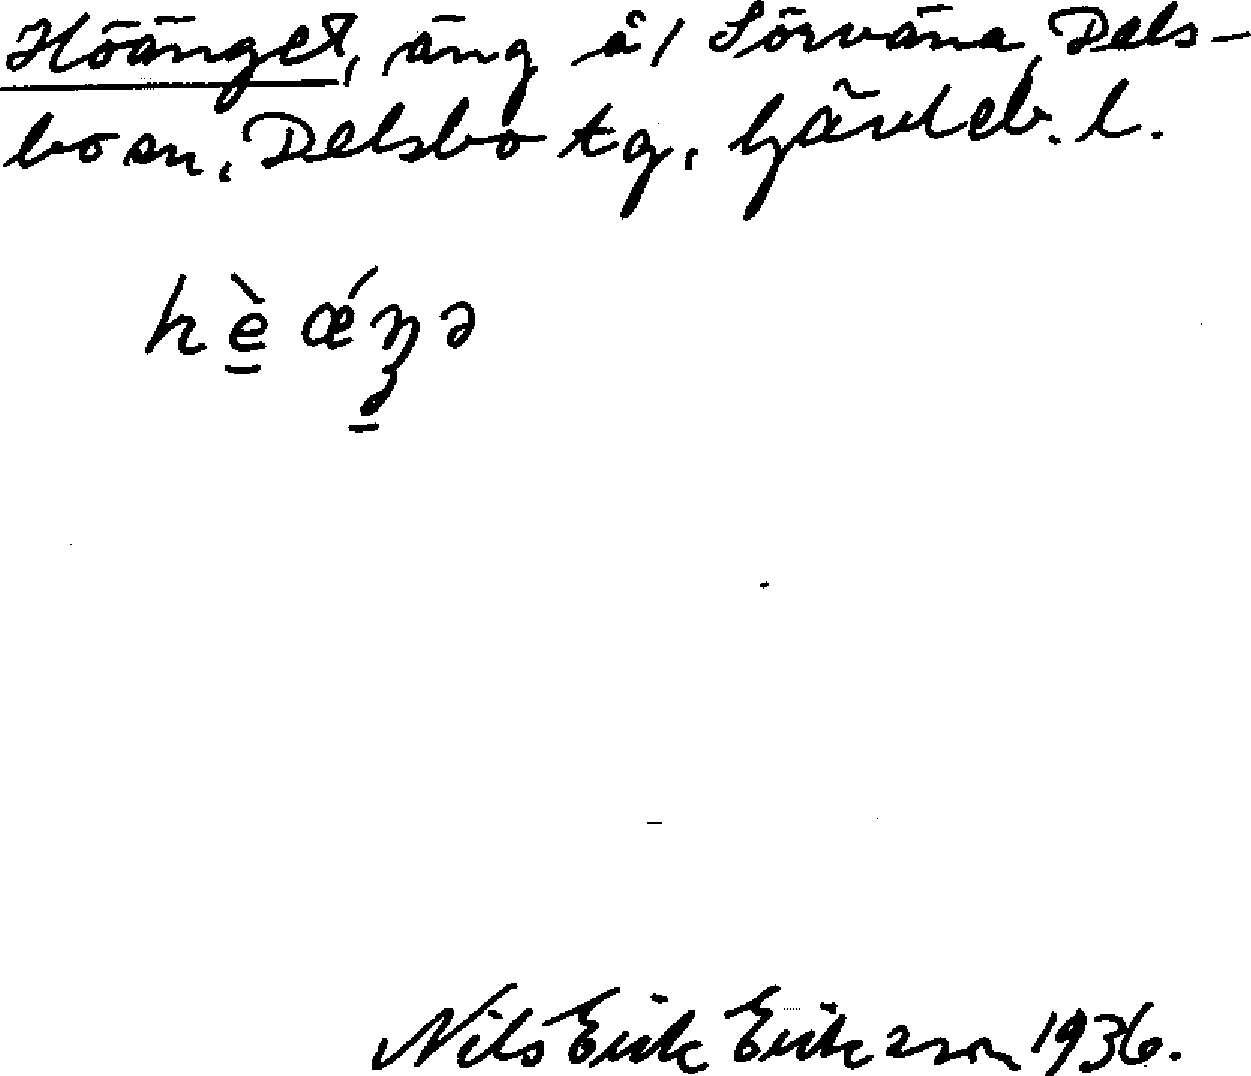 Höänget, äng å 1 Sörväna, Dels-
bo sn, Delsbo tg, Gävleb. l.
hè̠ ǽŋ̠ə
Nils Erik Eriksson 1936.